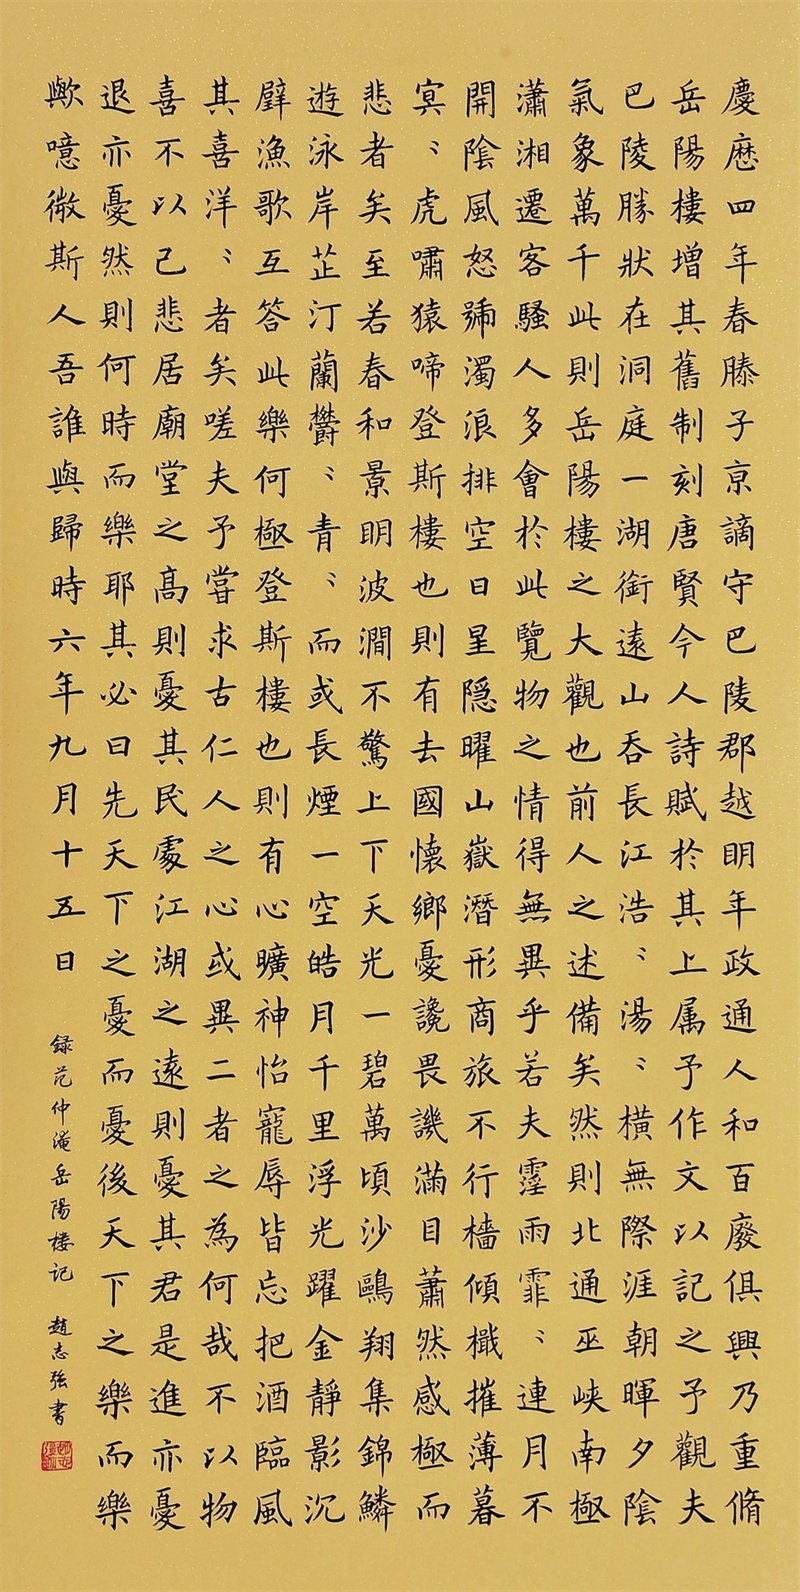 慶歷四年春滕子京謫守巴陵郡越明年政通人和百廢俱興乃重脩
岳陽樓增其舊制刻唐賢今人詩賦於其上属予作文以記之予觀夫
巴陵勝狀在洞庭一湖銜遠山吞長江浩〻湯〻橫無際涯朝暉夕陰
氣象萬千此則岳陽樓之大觀也前人之述備矣然則北通巫峽南極
瀟湘遷客騷人多會於此覽物之情得無異乎若夫霪雨霏〻連月不
開陰風怒號濁浪排空日星隱曜山嶽潛形商旅不行檣傾檝摧薄暮
冥〻虎嘯猿啼登斯樓也則有去國懷鄉憂讒畏譏滿目蕭然感極而
悲者矣至若春和景明波瀾不驚上下天光一碧萬頃沙鷗翔集錦鱗
遊泳岸芷汀蘭鬱〻青〻而或長煙一空皓月千里浮光躍金靜影沉
璧漁歌互答此樂何極登斯樓也則有心曠神怡寵辱皆忘把酒臨風
其喜洋〻者矣嗟夫予嘗求古仁人之心或異二者之為何哉不以物
喜不以己悲居廟堂之高則憂其民處江湖之遠則憂其君是進亦憂
退亦憂然則何時而樂耶其必曰先天下之憂而憂後天下之樂而樂
歟噫微斯人吾誰與歸時六年九月十五日
録范仲淹岳陽楼记 趙志強書